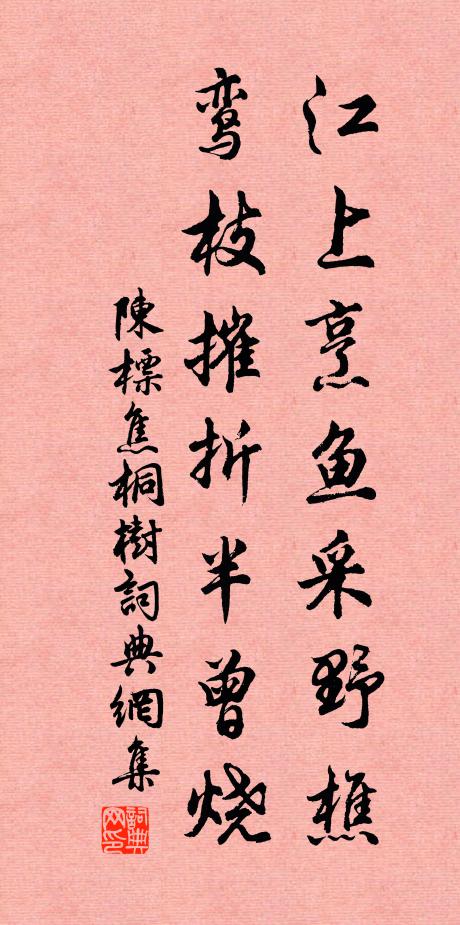 江上烹鱼采野樵
鸾枝摧折半曾烧
陳標焦桐樹詞典網集
詞典网印